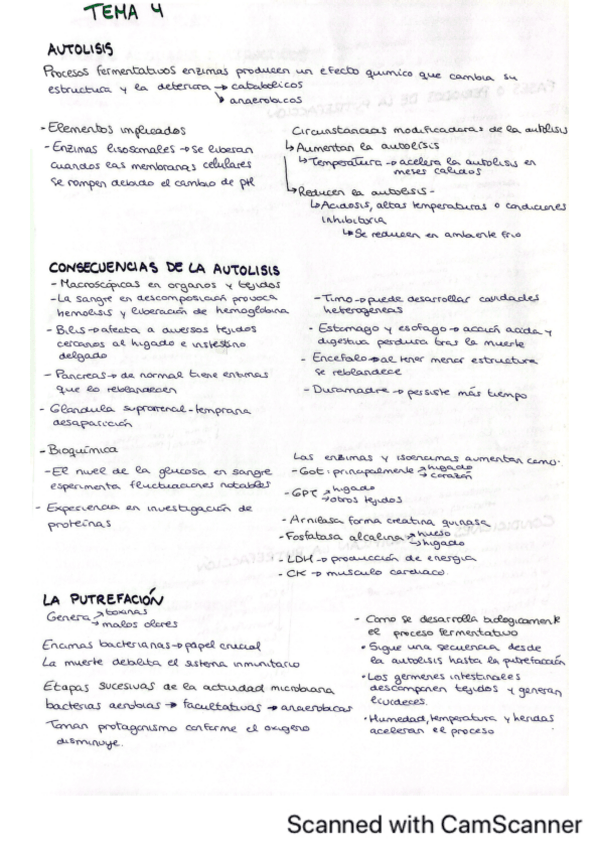 TEMA 4
AUTOLISIS
Procesos fermentativos enzimas producen un efecto quimico que cambia su
estructura y la deteriora → catabolicos
→ anaerobicos
- Elementos implicados
- Enzimas lisosomales → se liberan
cuando las membranas celulares
se rompen debido al cambio de pH
Circunstancias modificadoras de la autolisis
↳ Aumentan la autolisis
↳ Temperatura → acelera la autolisis en
meses calidos
↳ Reducen la autolisis -
↳ Acidosis, altas temperaturas o condiciones
inhibitoria
↳ Se reducen en ambiente frio
CONSECUENCIAS DE LA AUTOLISIS
- Macroscópicas en organos y tejidos
- La sangre en descomposición provoca
hemolisis y liberación de hemoglobina
- Bilis → afecta a diversos tejidos
cercanos al higado e intestino
delgado
- Pancreas → de normal tiene enzimas
que lo reblandecen
- Glandula suprarrenal - temprana
desaparición
- Timo → puede desarrollar cavidades
heterogeneas
- Estomago y esofago → acción acida y
digestiva perdura tras la muerte
- Encefalo → al tener menor estructura
se reblandece
- Duramadre → persiste más tiempo
- Bioquímica
- El nivel de la glucosa en sangre
experimenta fluctuaciones notables
- Experiencia en investigación de
proteínas
Las enzimas y isoenzimas aumentan como:
- Got: principalmente → higado
→ corazón
- GPT → higado
→ otros tejidos
- Amilasa forma creatina quinasa
- Fosfatasa alcalina → hueso
→ higado
- LDH → producción de energia
- CK → musculo cardiaco
LA PUTREFACIÓN
Genera → toxinas
→ malos olores
Encimas bacterianas → papel crucial
La muerte debilita el sistema inmunitario
Etapas sucesivas de la actividad microbiana
bacterias aerobias → facultativas → anaerobicas
Toman protagonismo conforme el oxigeno
disminuye.
- Como se desarrolla biologicamente
el proceso fermentativo
• Sigue una secuencia desde
la autolisis hasta la putrefacción
• Los germenes intestinales
descomponen tejidos y generan
livideces.
• Humedad, temperatura y heridas
aceleran el proceso
Scanned with CamScanner